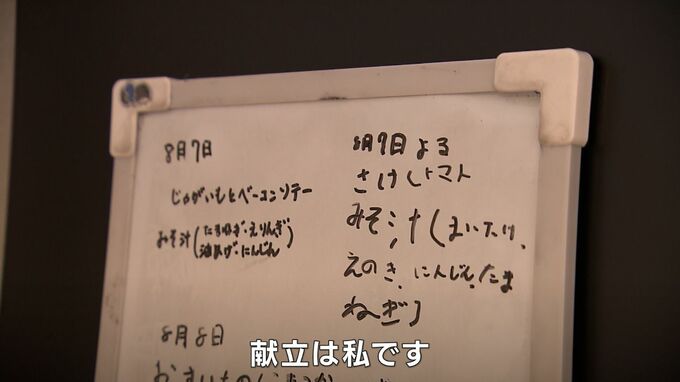 8月7日
じゃがいもとベーコンソテー
みそ汁(たまねぎ・えりんぎ
油あげ・にんじん)
8月8日
8月9日 よる
さけ トマト
みそ汁(まいたけ、
えのき、にんじん、たま
ねぎ)
献立は私です